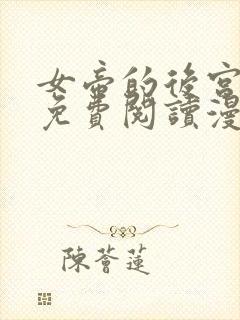 女帝的後宮
免費閱讀漫
陳薈蓮